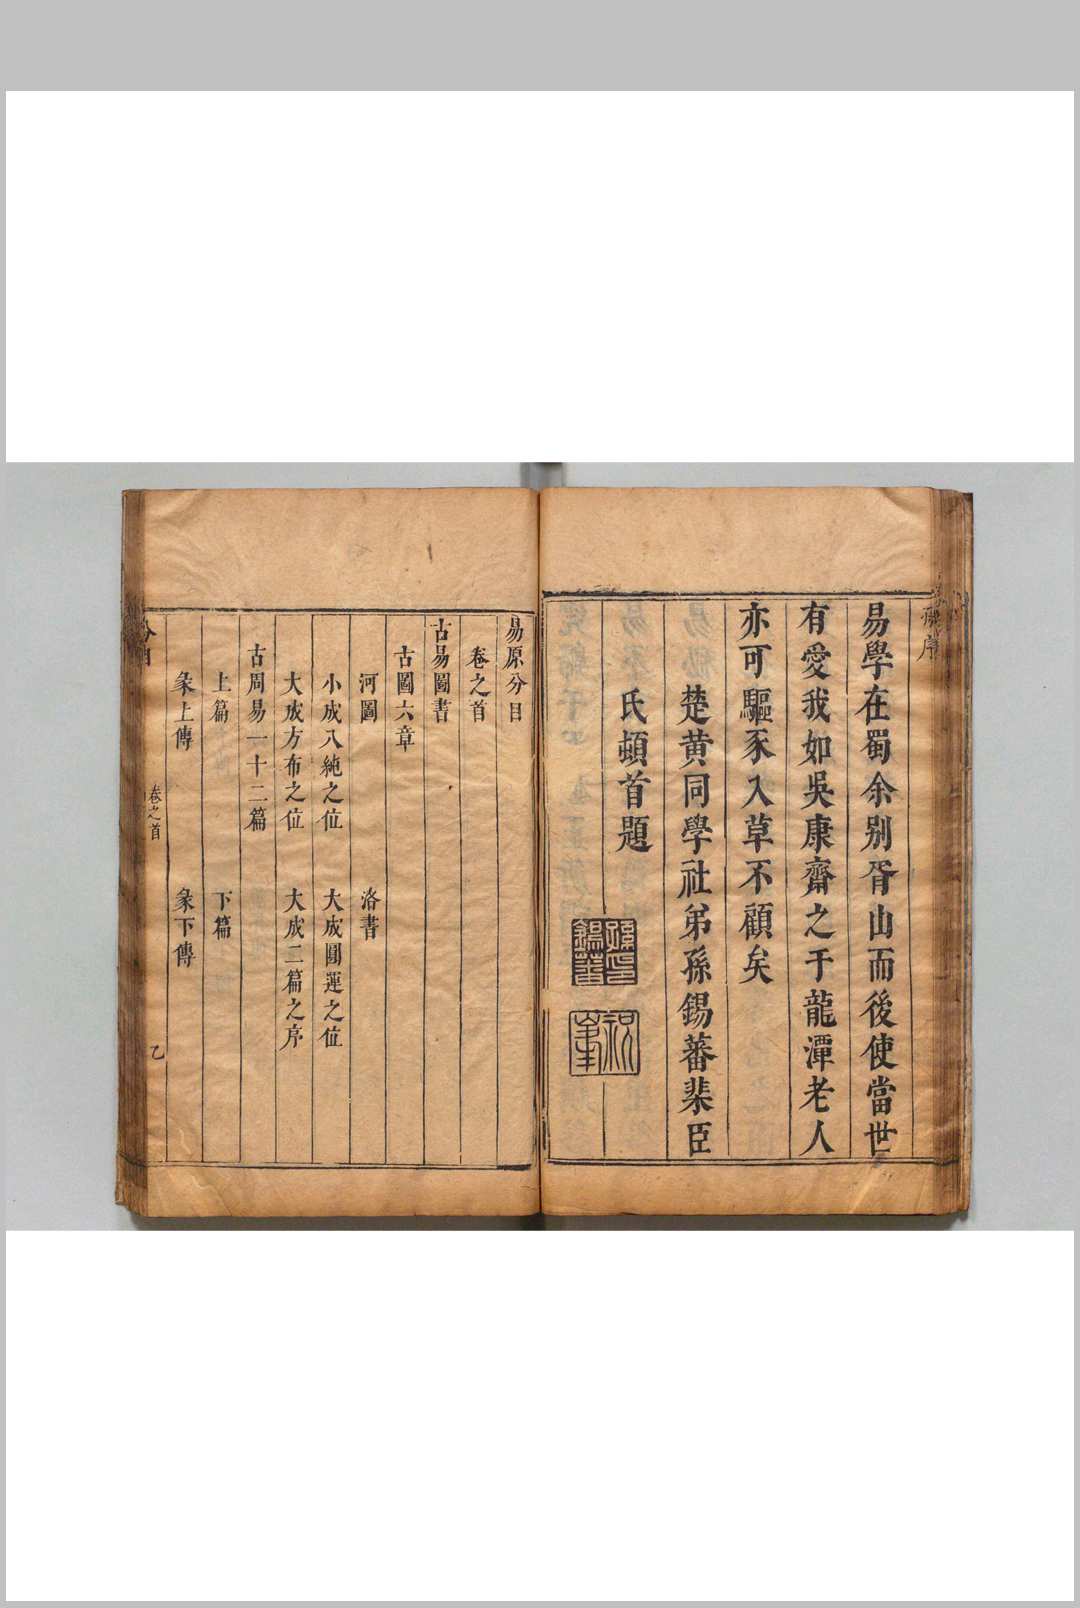 易學在蜀余別胥山而後使當世
有愛我如吳康齋之于龍潭老人
亦可驅豕入草不顧矣
楚黃同學社弟孫錫蕃棐臣
氏頓首題
孫印
錫蕃
易原分目
卷之首
古易圖書
古圖六章
河圖
洛書
小成八純之位
大成圓運之位
大成方布之位
大成二篇之序
古周易一十二篇
上篇
下篇
彖上傳
彖下傳
卷之首
乙